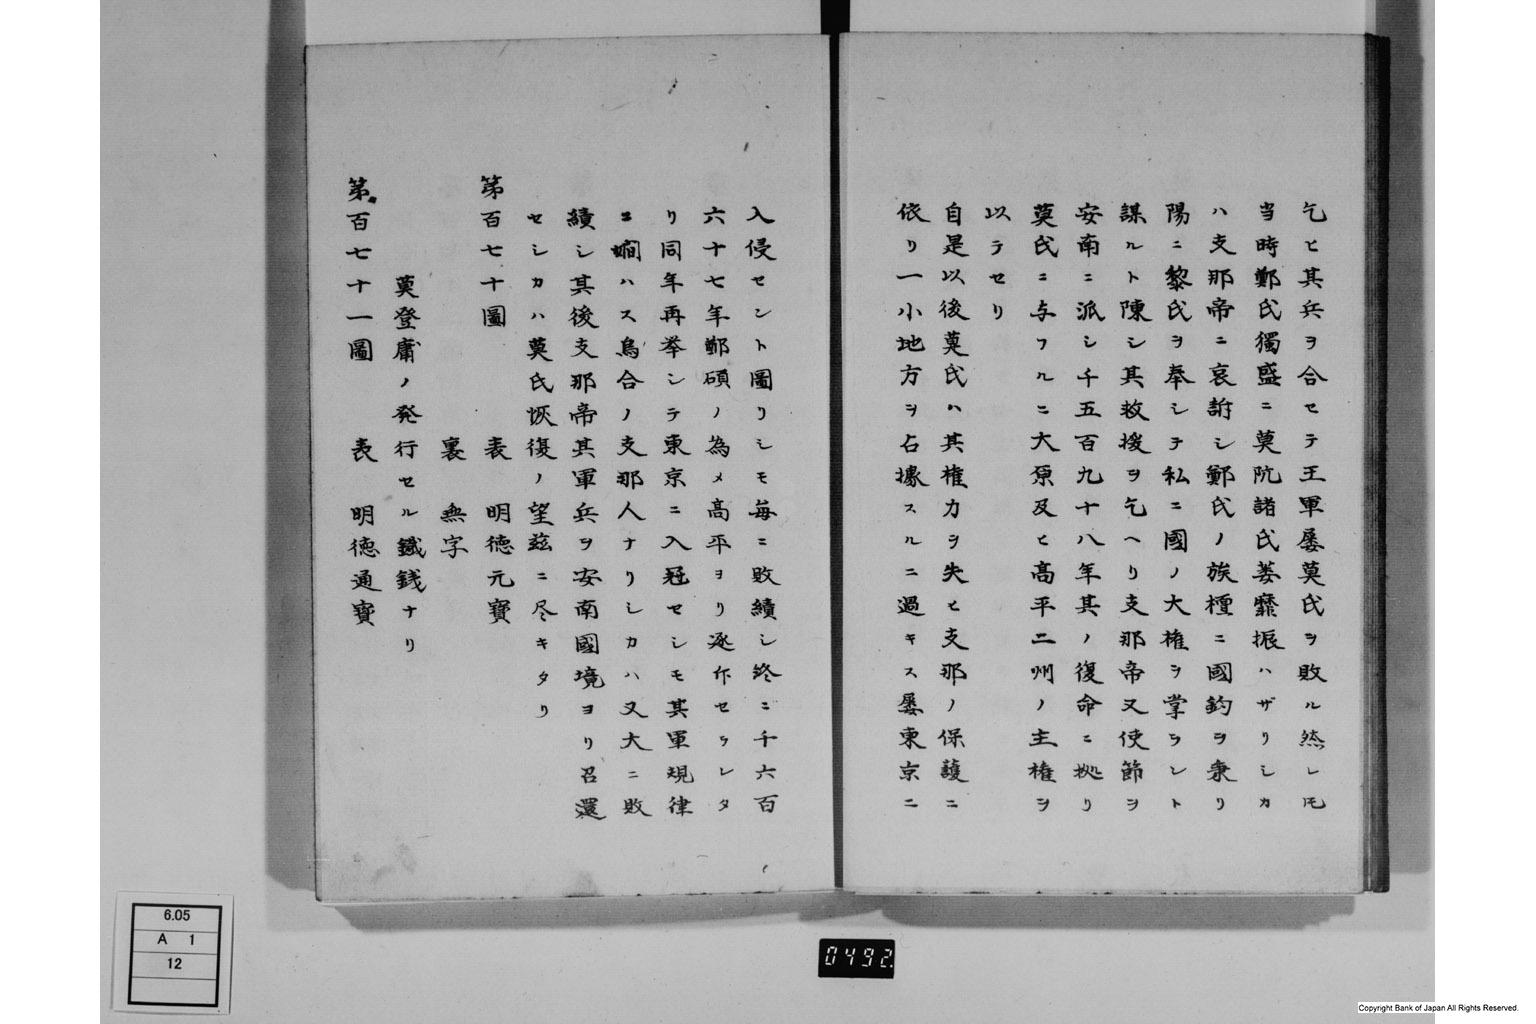 乞ヒ其兵ヲ合セテ王軍屡莫氏ヲ敗ル然レ𪜈
当時鄭氏獨盛ニ莫阮諸氏萎靡振ハザリシカ
ハ支那帝ニ哀訴シ鄭氏ノ族檀ニ國鈞ヲ秉リ
陽ニ黎氏ヲ奉シテ私ニ國ノ大権ヲ掌ラント
謀ルト陳シ其救援ヲ乞ヘリ支那帝又使節ヲ
安南ニ派シ千五百九十八年其ノ復命ニ拠リ
莫氏ニ与フルニ大原及ヒ高平二州ノ主権ヲ
以テセリ
自是以後莫氏ハ其権力ヲ失ヒ支那ノ保護ニ
依リ一小地方ヲ占據スルニ過キス屡東京ニ
入侵セント圖リシモ毎ニ敗績シ終ニ千六百
六十七年鄭碩ノ為メ高平ヨリ逐斥セラレタ
リ同年再挙シテ東京ニ入冦セシモ其軍規律
ニ嫺ハス烏合ノ支那人ナリシカハ又大ニ敗
績シ其後支那帝其軍兵ヲ安南國境ヨリ召還
セシカハ莫氏恢復ノ望茲ニ尽キタリ
第百七十圖 表 明徳元寳
裏 無字
莫登庸ノ発行セル鐵銭ナリ
第百七十一圖 表 明徳通寳
6.05
A 1
12
0492
Copyright Bank of Japan All Rights Reserved.